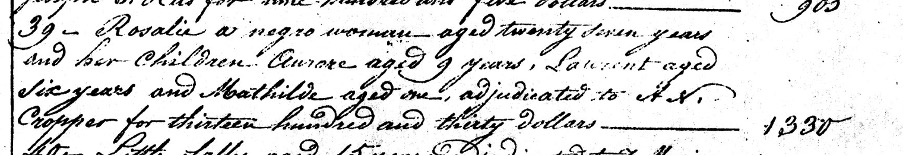 for nine hundred and five dollars 905
39 - Rosalie a negro woman aged twenty seven years
and her children Aurore aged 9 years, Laurent aged
six years and Mathilde aged one, adjudicated to A N.
Cropper for thirteen hundred and thirty dollars 1330
aged 15